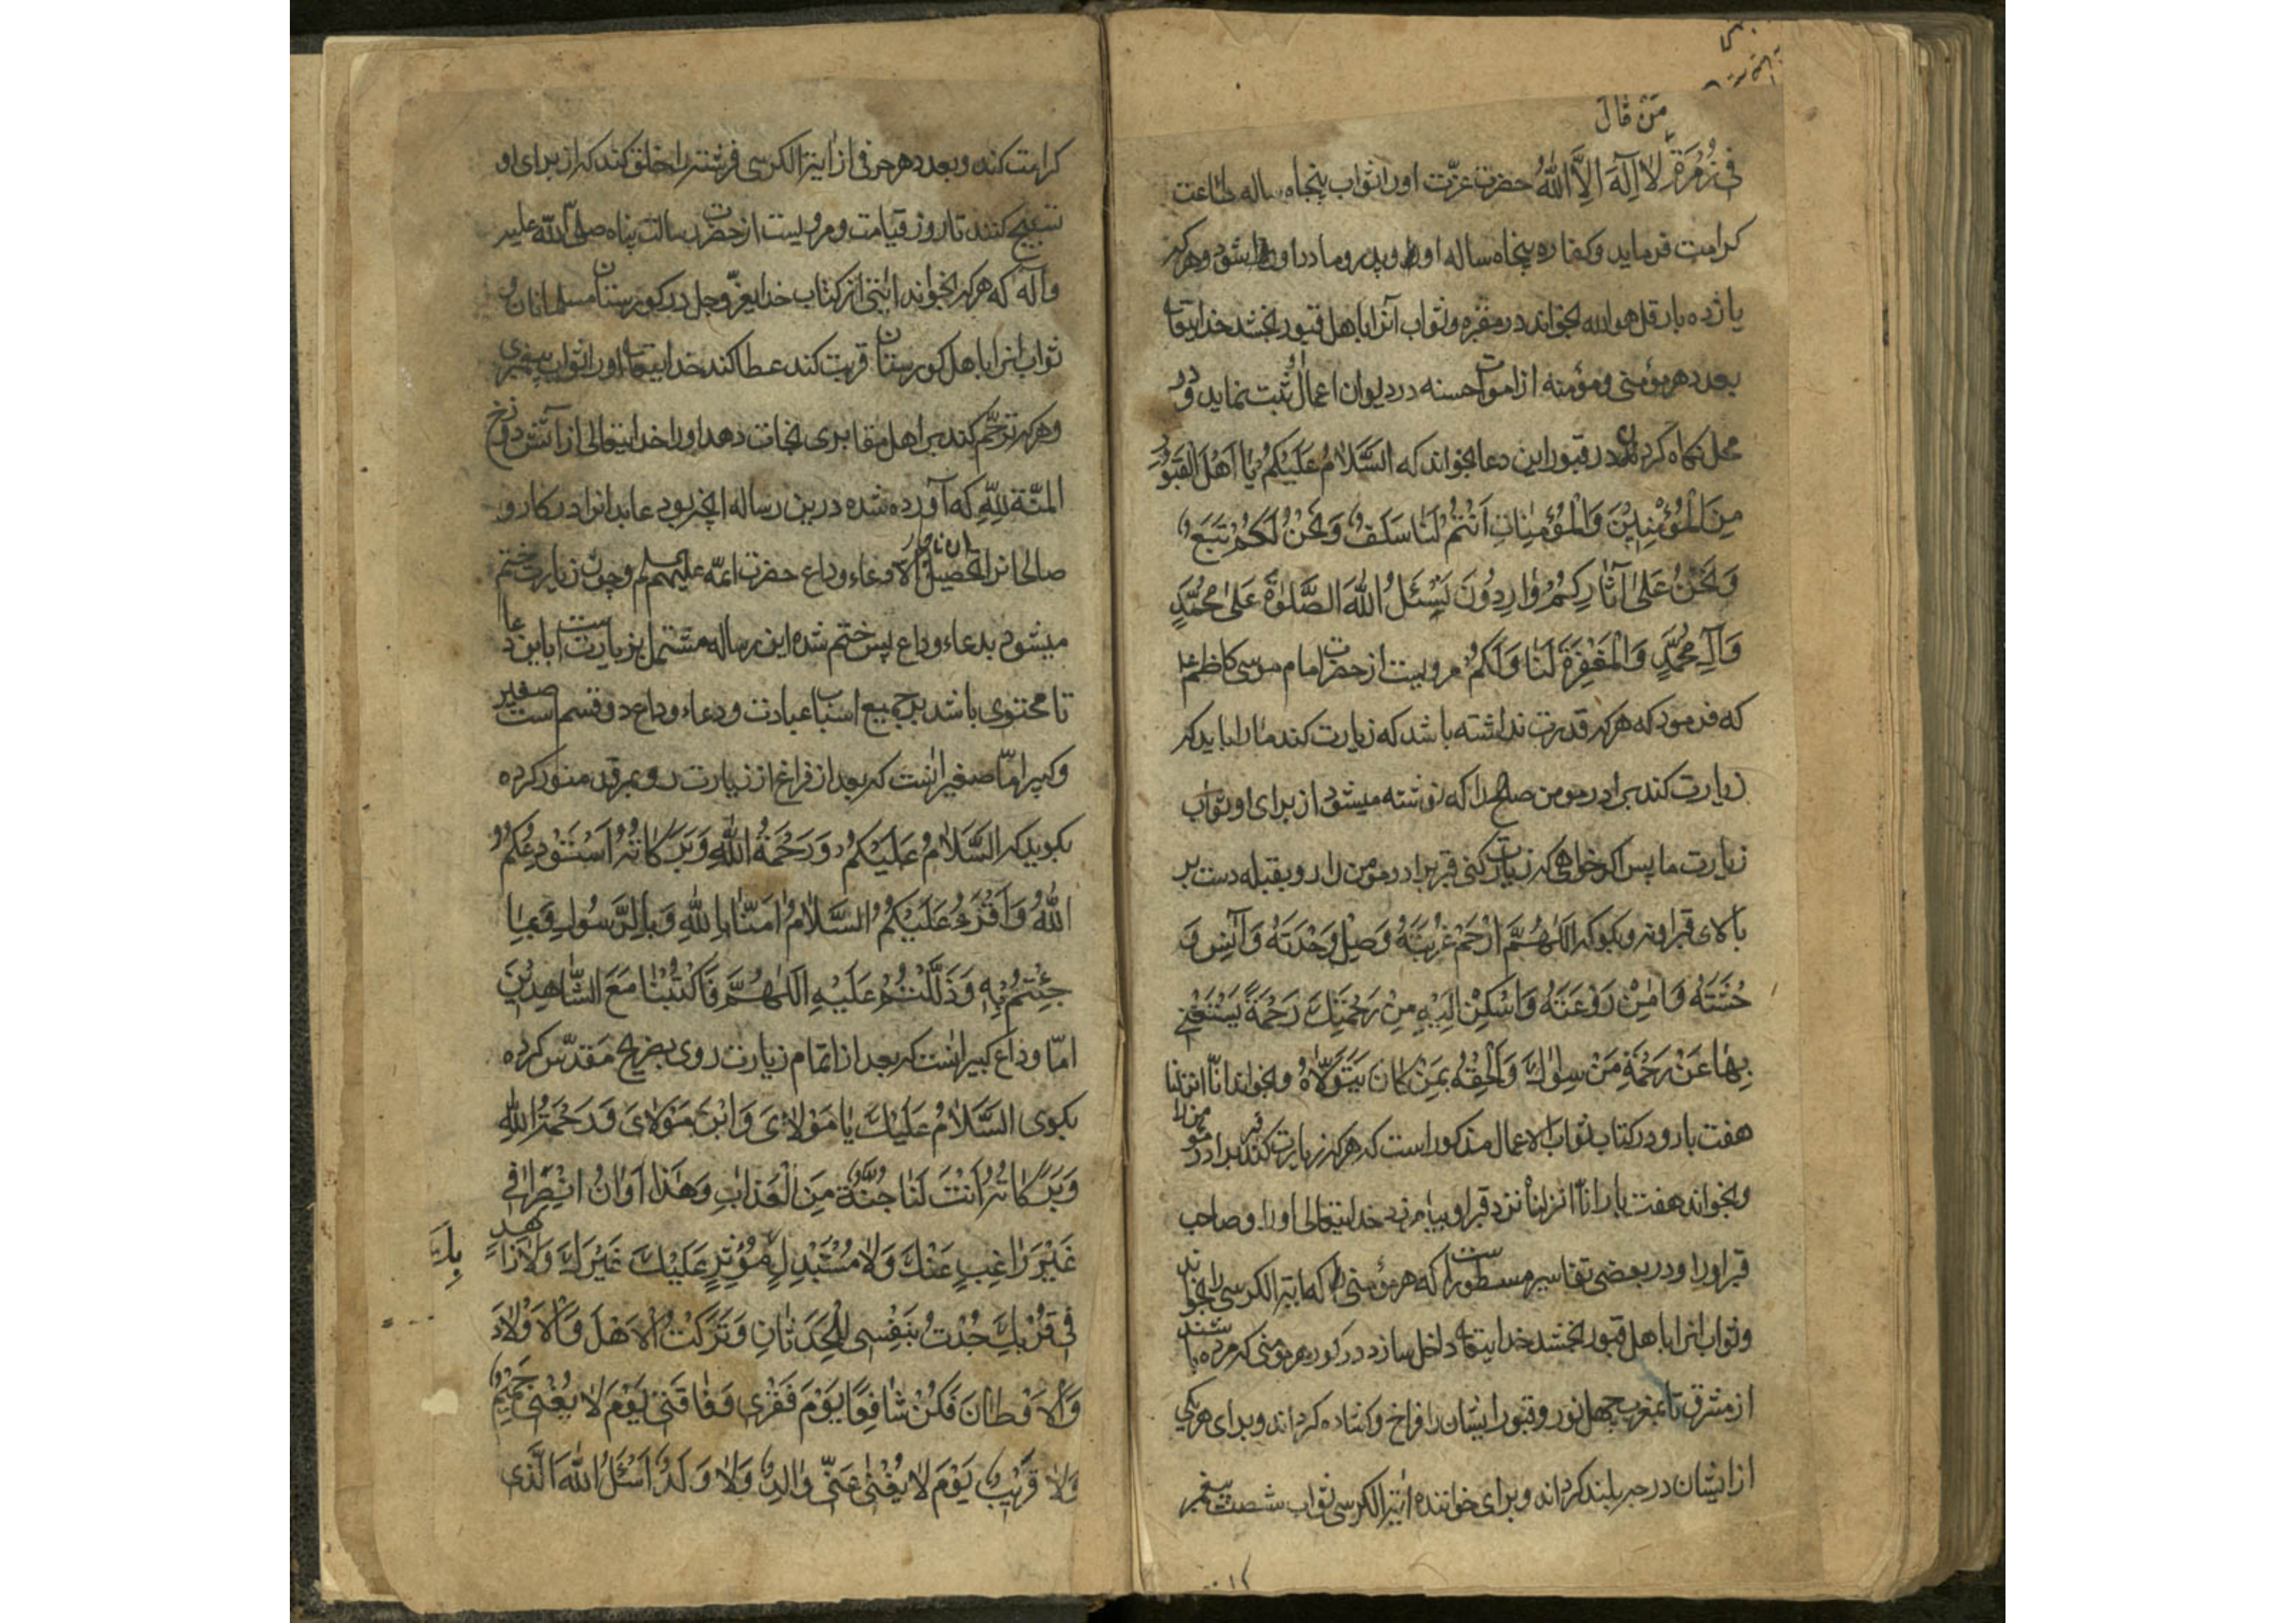 من قال
فی زُمْرَةِ لا اِلٰهَ اِلَّا اللهُ حضرت عزّت او را ثواب پنجاه ساله طاعت
کرامت فرماید و کفاره پنجاه ساله او را و پدر و مادر او را شود و هر که
یازده بار قل هو الله بخواند در مقبره و ثواب آنرا باهل قبور بخشد خدایتعا
بعدد هر مؤمنی و مؤمنه از اموات حسنه در دیوان اعمال او ثبت نماید و در
محل نکاه کردن در قبور این دعا بخواند که اَلسَّلامُ عَلَیْکُمْ یا اَهْلَ الْقُبُورِ
مِنَ الْمُؤْمِنِینَ وَالْمُؤْمِناتِ اَنْتُمْ لَنا سَلَفٌ وَنَحْنُ لَکُمْ تَبَعٌ
وَنَحْنُ عَلیٰ آثارِکُمْ وارِدُونَ نَسْئَلُ اللهَ الصَّلٰوةَ عَلیٰ مُحَمَّدٍ
وَآلِ مُحَمَّدٍ وَالْمَغْفِرَةَ لَنا وَلَکُمْ مرویست از حضرت امام موسی کاظم علیه
که فرمود که هر که قدرت نداشته باشد که زیارت کند ما را باید که
زیارت کند برادر مومن صالح را که نوشته میشود از برای او ثواب
زیارت ما پس اکر خواهی که زیارت کنی قبر برادر مومن را رو بقبله دست بر
بالای قبر او نه و بکو که اَللّٰهُمَّ ارْحَمْ غُرْبَتَهُ وَصِلْ وَحْدَتَهُ وَآنِسْ وَ
حْشَتَهُ وَآمِنْ رَوْعَتَهُ وَاَسْکِنْ اِلَیْهِ مِنْ رَحْمَتِكَ رَحْمَةً یَسْتَغْنِی
بِها عَنْ رَحْمَةِ مَنْ سِواكَ وَاَلْحِقْهُ بِمَنْ کانَ یَتَوَلّاهُ و بخواند انّا انزلنا
هفت بار و در کتاب ثواب الاعمال مذکور است که هر که زیارت کند قبر برادر مؤمن را
و بخواند هفت بار انّا انزلناه نزد قبر او بیامرزد خدایتعالی او را و صاحب
قبر او را و در بعضی تفاسیر مسطور است که هر مؤمنی که آیة الکرسی را بخواند
و ثواب انرا باهل قبور بخشد خدایتعا داخل سازد در کور هر مومنی که مرده باشند
از مشرق تا بمغرب چهل نور و قبور ایشان را فراخ و کشاده کرداند و برای هر یکی
از ایشان درجه بلند کرداند و برای خواننده آیة الکرسی ثواب شصت پیغمبر
کرامت کند و بعدد هر حرفی از ایة الکرسی فرشته را خلق کند که از برای او
تسبیح کنند تا روز قیامت و مرویست از حضرت رسالت پناه صلی الله علیه
و آله که هر که بخواند ایتی از کتاب خدای عزّ و جل در کورستان مسلمانان و
ثواب انرا باهل کورستان قربت کند عطا کند خدایتعا او را ثواب پیغمبری
و هر که ترحّم کند بر اهل مقابری نجات دهد او را خدایتعالی از آتش دوزخ
المنّة لِلّٰهِ که آورده شده درین رساله انچه بود عابدانرا در کار و
صالحانرا تحصیل ان ناچار الا دعاء وداع حضرت ائمّه علیهم السلم و چون زیارت ختم
میشود بدعاء وداع پس ختم شده این رساله مشتمل بر زیارت است باین دعا
تا محتوی باشد بر جمیع اسباب عبادت و دعاء وداع دو قسم است صغیر
و کبیر امّا صغیر انست که بعد از فراغ از زیارت رو بمرقد منور کرده
بکوید که اَلسَّلامُ عَلَیْکُمْ وَرَحْمَةُ اللهِ وَبَرَکاتُهُ اَسْتَوْدِعُکُمُ
اللهُ وَاَقْرَءُ عَلَیْکُمُ السَّلامُ امَنّا بِاللهِ وَبِالرَّسُولِ وَبِما
جِئْتُمْ بِهِ وَدَلَلْتُمْ عَلَیْهِ اَللّٰهُمَّ فَاکْتُبْنا مَعَ الشّاهِدِینَ
امّا وداع کبیر انست که بعد از اتمام زیارت روی بضریح مقدّس کرده
بکوی اَلسَّلامُ عَلَیْكَ یا مَوْلایَ وَابْنَ مَوْلایَ وَرَحْمَةُ اللهِ
وَبَرَکاتُهُ اَنْتَ لَنا جُنَّةٌ مِنَ الْعَذابِ وَهٰذا اَوانُ انْصِرافِی
غَیْرَ راغِبٍ عَنْكَ وَلا مُسْتَبْدِلٍ بِكَ وَلا مُؤْثِرٍ عَلَیْكَ غَیْرَكَ وَلا زاهِدٍ
فِی قُرْبِكَ جُدْتُ بِنَفْسِی لِلْحَدَثانِ وَتَرَکْتُ الْاَهْلَ وَالْاَوْلادَ
وَالْاَوْطانَ فَکُنْ شافِعًا یَوْمَ فَقْرِی وَفاقَتِی یَوْمَ لا یُغْنِی حَمِیمٌ
وَلا قَرِیبٌ یَوْمَ لا یُغْنِی عَنِّی والِدٌ وَلا وَلَدٌ اَسْئَلُ اللهَ الَّذِی